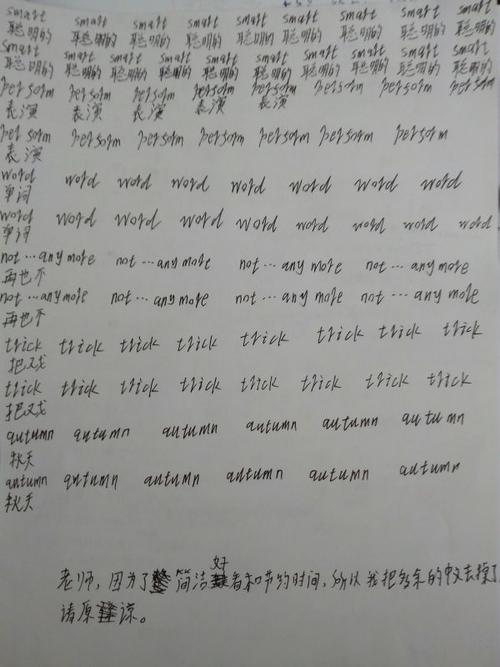 smart smart smart smart smart smart smart smart smart
聪明的 聪明的 聪明的 聪明的 聪明的 聪明的 聪明的 聪明的 聪明的
smart smart smart smart smart smart smart smart smart smart
聪明的 聪明的 聪明的 聪明的 聪明的 聪明的 聪明的 聪明的 聪明的 聪明的
perform perform perform perform perform perform perform perform
表演 表演 表演 表演 表演
perform perform perform perform perform perform perform
表演
word word word word word word word word
单词
word word word word word word word word word
单词
not…any more not…any more not…any more not…any more
再也不
not…any more not…any more not…any more not…any more
再也不
trick trick trick trick trick trick trick trick
把戏
trick trick trick trick trick trick trick trick
把戏
autumn autumn autumn autumn autumn autumn
秋天
autumn autumn autumn autumn autumn autumn
秋天
老师，因为了简洁好看和节约时间，所以我把多余的中文去掉了
请原谅。